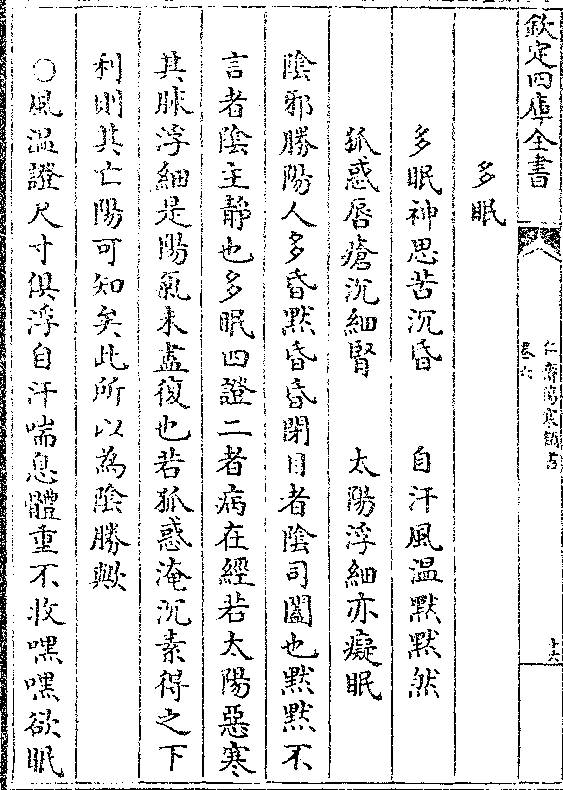 欽定四庫全書
仁齋傷寒類書
卷六
十六
多眠
多眠神思苦沉昏　自汗風溫默默然
狐惑唇瘡沉細腎　太陽浮細亦癡眠
陰邪勝陽人多昏默昏昏閉目者陰司闔也默默不
言者陰主靜也多眠四證二者病在經若太陽惡寒
其脉浮細是陽氣未盡復也若狐惑淹沉素得之下
利則其亡陽可知矣此所以為陰勝歟
○風溫證尺寸俱浮自汗喘息體重不收嘿嘿欲眠